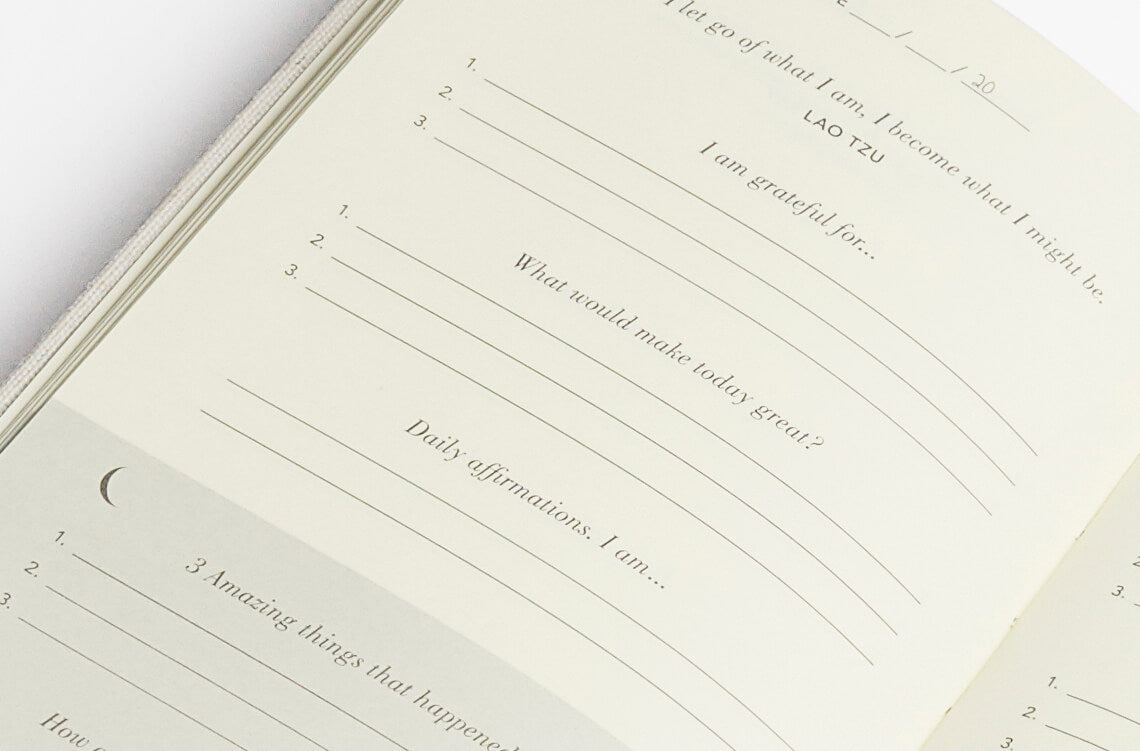 / / 20
I let go of what I am, I become what I might be.
LAO TZU
I am grateful for...
1.
2.
3.
What would make today great?
1.
2.
3.
Daily affirmations. I am...
3 Amazing things that happened
1.
2.
3.
How
2.
3.
1.
2.
3.